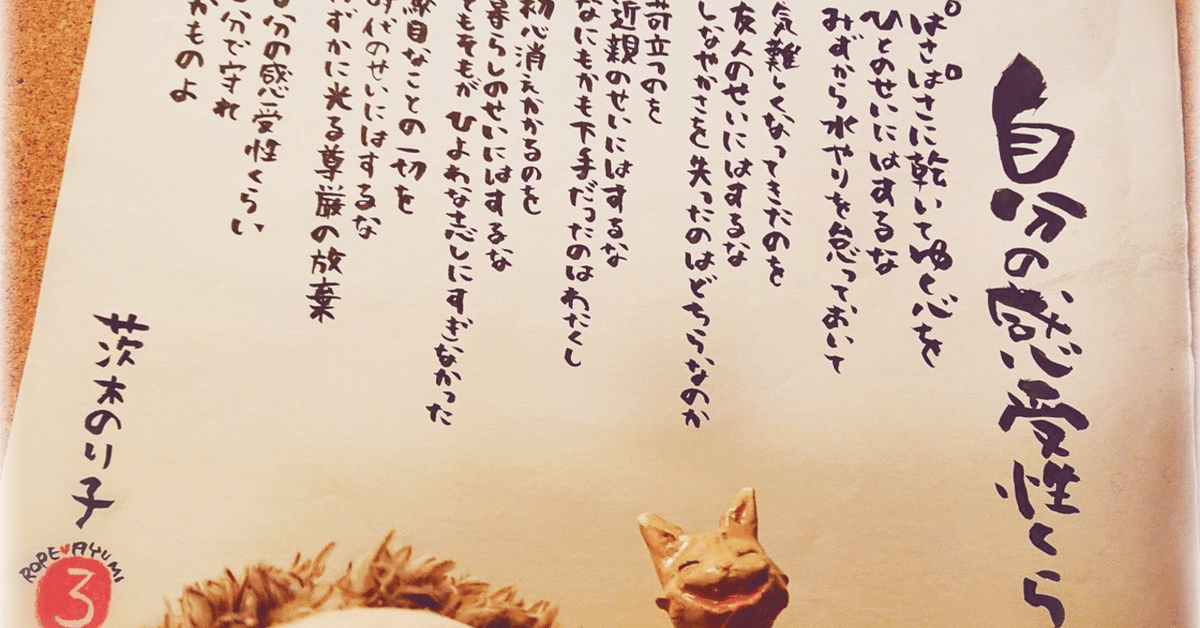 自分の感受性くら
ぱさぱさに乾いてゆく心を
ひとのせいにはするな
みずから水やりを怠っておいて
気難しくなってきたのを
友人のせいにはするな
しなやかさを失ったのはどちらなのか
苛立つのを
近親のせいにはするな
なにもかも下手だったのはわたくし
初心消えかかるのを
暮らしのせいにはするな
そもそもが ひよわな志しにすぎなかった
駄目なことの一切を
時代のせいにはするな
わずかに光る尊厳の放棄
自分の感受性くらい
分で守れ
かものよ
茨木のり子
ROPE♥AYUMI
3